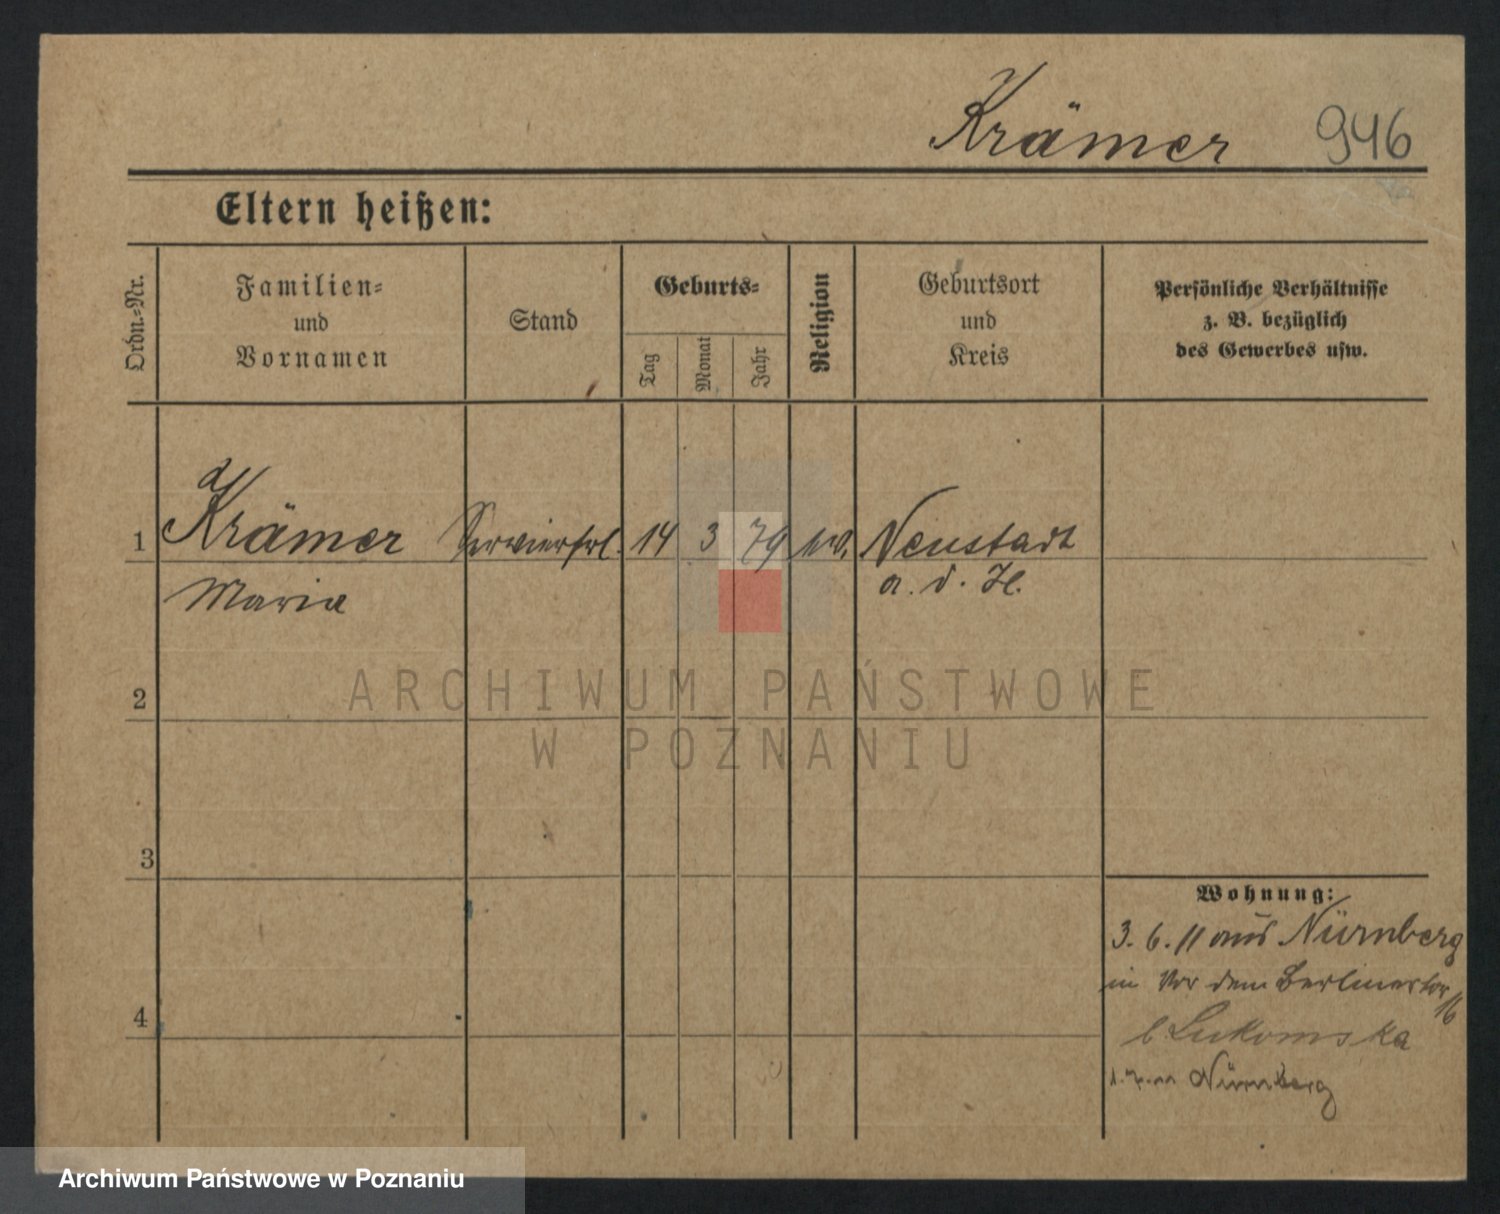 Krämer 946
Eltern heißen:
Ordn.-Nr.
Familien-
und
Vornamen
Stand
Geburts-
Tag
Monat
Jahr
Religion
Geburtsort
und
Kreis
Persönliche Verhältnisse
z. B. bezüglich
des Gewerbes usw.
1 Krämer Servierfrl. 14 3 79 Neustadt
Maria a. d. H.
ARCHIWUM PAŃSTWOWE
W POZNANIU
2
3
4
Wohnung:
3. 6. 11 aus Nürnberg
in Vor dem Berlinertor 16
b Lukomska
Nürnberg
Archiwum Państwowe w Poznaniu